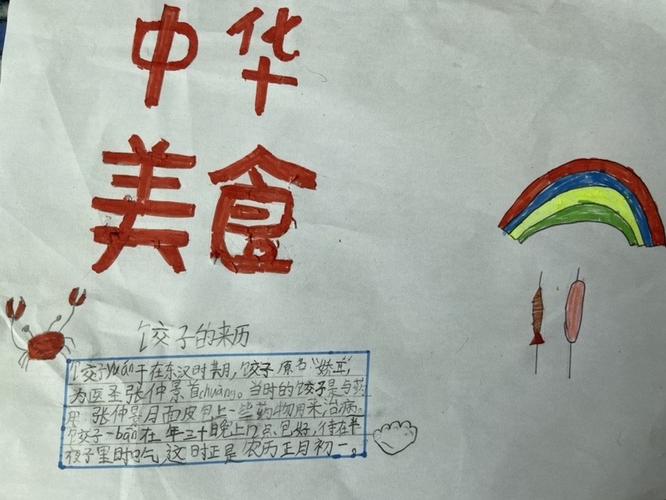 中华
美食
饺子的来历
饺子yuán于在东汉时期，饺子原名“娇耳”，
为医圣张仲景首chuàng。当时的饺子是与药
用，张仲景用面皮包上一些药物用来治病。
饺子一bān在年三十晚上门只包好，待在半
夜子里时吃，这时正是农历正月初一。